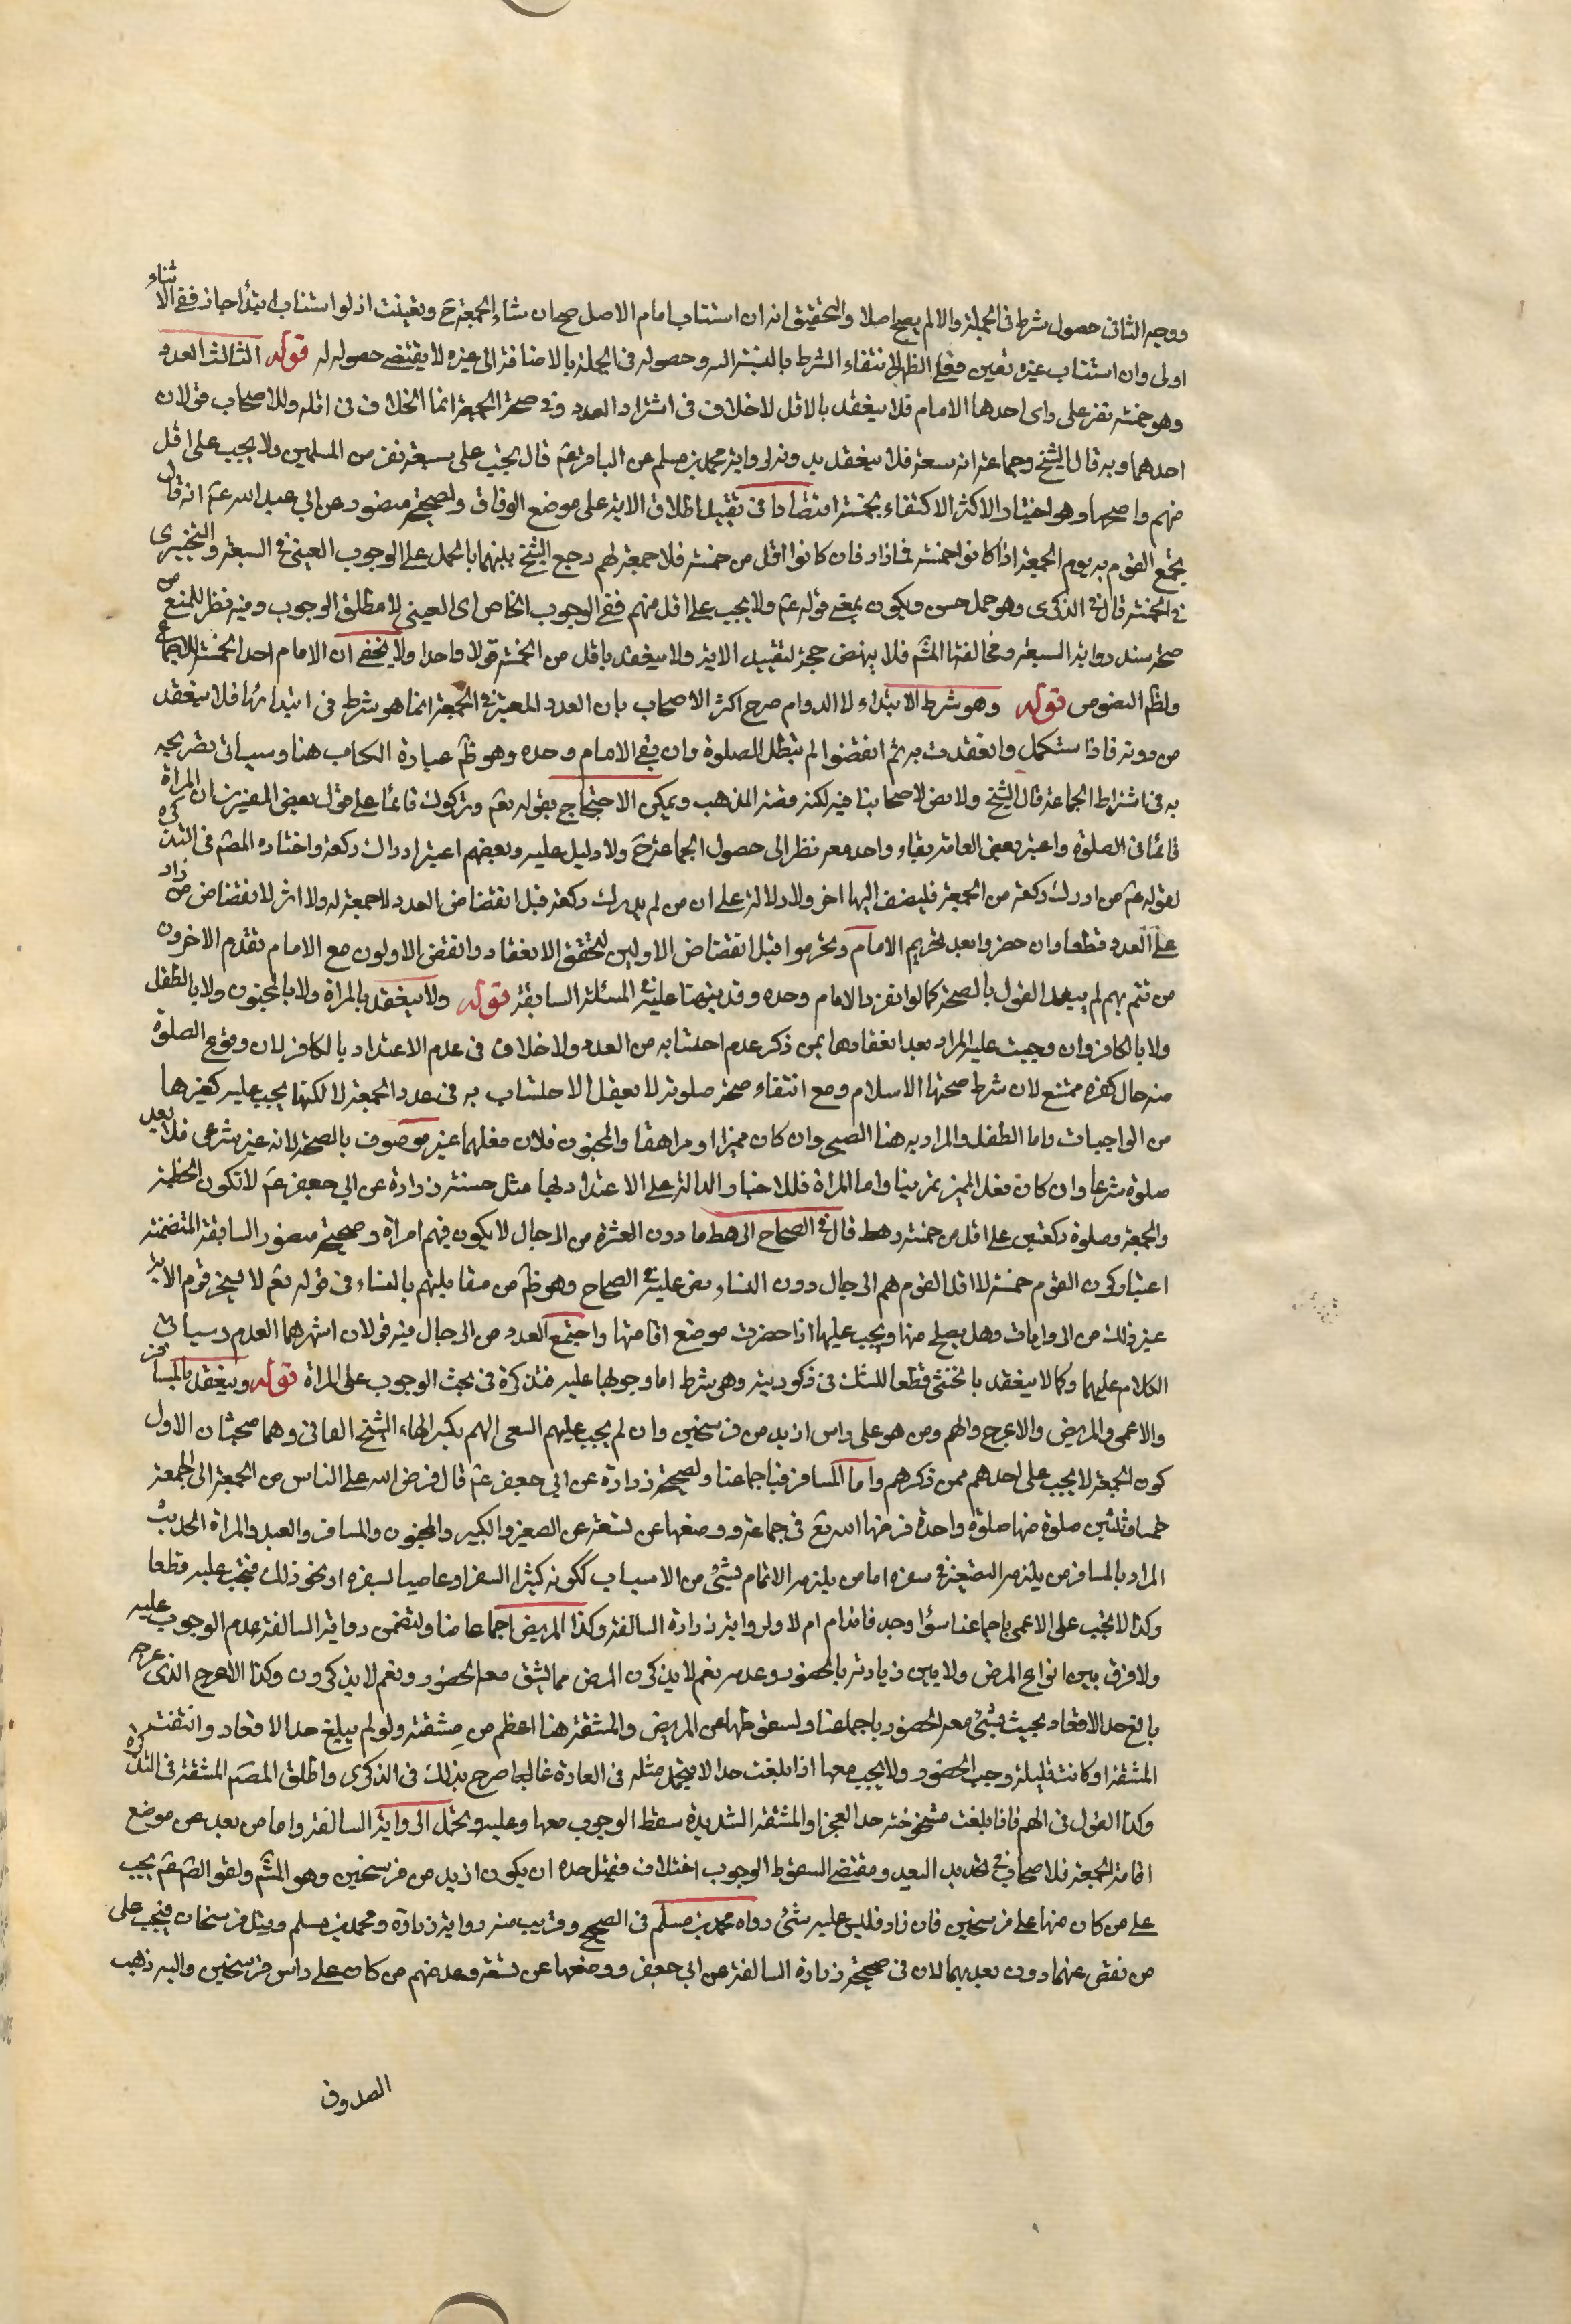 ووجه الثانى حصول شرط فى الجملة والا لم يصح اصلا والتحقيق انه ان استناب امام الاصل صح ان شاء الجمعة ح وتعينت اذ لو استناب ابتدأ جاز ففى الاثناء
اولى وان استناب غيره تعين فعلى الظهر لانتفاء الشرط بالنسبة اليه وحصوله فى الجملة بالاضافة الى غيره لا يقتضى حصوله له قوله الثالث العدد
وهو خمسة نفر على راى احدها الامام فلا ينعقد بالاقل لا خلاف فى اشتراط العدد فى صحة الجمعة انما الخلاف فى اقله وللاصحاب قولان
احدهما وبه قال الشيخ وجماعة انه سبعة فلا ينعقد بدونه لرواية محمد بن مسلم عن الباقر عم قال تجب على سبعة نفر من المسلمين ولا يجب على اقل
منهم واصحها وهو اختيار الاكثر الاكتفاء بخمسة اقتصارا فى تقييد اطلاق الاية على موضع الوفاق ولصحيحة منصور عن ابي عبد الله عم انه قال
يجمع القوم به يوم الجمعة اذا كانوا خمسة فما زاد فان كانوا اقل من خمسة فلا جمعة لهم وجمع الشيخ بينهما بالحمل على الوجوب العينى فى السبعة والتخييرى
فى الخمسة قال فى الذكرى وهو حمل حسن ويكون معنى قوله عم ولا يجب على اقل منهم نفى الوجوب الخاص اى العينى لا مطلق الوجوب وفيه نظر للمنع من
صحة سند رواية السبعة ومخالفتها المشهـ فلا ينهض حجة لتقييد الاية ولا ينعقد باقل من الخمسة قولا واحدا ولا يخفى ان الامام احد الخمسة للاجماع
ولظم النصوص قوله وهو شرط الابتداء لا الدوام صرح اكثر الاصحاب بان العدد المعتبر فى الجمعة انما هو شرط فى ابتدائها فلا ينعقد
من دونه فاذا استكمل وانعقدت به ثم انفضوا لم تبطل الصلوة وان بقى الامام وحده وهو ظم عبارة الكتاب هنا وسياتى تصريحه
به فى اشتراط الجماعة قال الشيخ ولا نص لاصحابنا فيه لكنه قضية المذهب ويمكن الاحتجاج بقوله تعم وتركوك قائما على قول بعض المفسرين ان المراد
قائما فى الصلوة واعتبر بعض العامة بقاء واحد معه نظر الى حصول الجماعة ح ولا دليل عليه وبعضهم اعتبر ادراك ركعة واختاره المصم فى التذكرة
لقوله عم من ادرك ركعة من الجمعة فليضف اليها اخرى ولا دلالة على ان من لم يدرك ركعة قبل انفضاض العدد لا جمعة له ولا اثر لانفضاض من زاد
على العدد قطعا وان حضروا بعد تحريم الامام وتحرموا قبل انفضاض الاولين لتحقق الانعقاد وانفض الاولون مع الامام تقدم الاخرون
من تتم بهم لم يبعد القول بالصحة كما لو انفرد الامام وحده وقد نبهنا عليه فى المسئلة السابقة قوله ولا ينعقد بالمراة ولا بالمجنون ولا بالطفل
ولا بالكافر وان وجبت عليه المراد بعد انعقادها بمن ذكر عدم احتسابه من العدد ولا خلاف فى عدم الاعتداد بالكافر لان وقوع الصلوة
منه حال كفره ممتنع لان شرط صحتها الاسلام ومع انتفاء صحة صلوته لا يعقل الاحتساب به فى عدد الجمعة لا لكنها يجب عليه كغيرها
من الواجبات واما الطفل والمراد به هنا الصبى وان كان مميزا او مراهقا والمجنون فلان فعلهما غير موصوف بالصحة لانه غير شرعى فلا يعد
صلوة شرعا وان كان فعل المميز تمرينا واما المراة فللاخبار الدالة على الاعتداد بها مثل حسنة زرارة عن ابي جعفر عم لا تكون الخطبة
والجمعة وصلوة ركعتين على اقل من خمسة رهط قال فى الصحاح الرهط ما دون العشرة من الرجال لا يكون فيهم امراة وصحيحة منصور السابقة المتضمنة
اعتبار كون القوم خمسة لا اقل القوم هم الرجال دون النساء نص عليه فى الصحاح وهو ظم من مقابلتهم بالنساء فى قوله تعم لا يسخر قوم الاية
غير ذلك من الروايات وهل يصح منها ويجب عليها اذا حضرت موضع اقامتها واجتمع العدد من الرجال فيه قولان اشهرهما العدم وسياتى
الكلام عليهما وكما لا ينعقد بالخنثى قطعا للشك فى ذكوريته وهى شرط اما وجوبها عليه فنذكره فى بحث الوجوب على المراة قوله وينعقد بالمسافر
والاعمى والمريض والاعرج والهم ومن هو على راس ازيد من فرسخين وان لم يجب عليهم السعى الهم بكسر الهاء الشيخ الفانى وهما مبحثان الاول
كون الجمعة لا يجب على احدهم ممن ذكرهم واما المسافر فباجماعنا ولصحيحة زرارة عن ابي جعفر عم قال فرض الله على الناس من الجمعة الى الجمعة
خمسا وثلثين صلوة منها صلوة واحدة فرضها الله تع فى جماعة ووضعها عن تسعة عن الصغير والكبير والمجنون والمسافر والعبد والمراة الحديث
المراد بالمسافر من يلزمه التقصير فى سفره اما من يلزمه الاتمام بشئ من الاسباب ككونه كثير السفر او عاصيا بسفره او نحو ذلك فتجب عليه قطعا
وكذا لا تجب على الاعمى باجماعنا سواء وجد قائدا ام لا ولرواية زرارة السالفة وكذا المريض اجماعا منا ولتضمن رواية السالفة عدم الوجوب عليه
ولا فرق بين انواع المرض ولا بين زيادته بالحضور وعدمه نعم لا بد من كون المرض مما يشق معه الحضور ونعم لا بد من كون وكذا الاعرج الذى عرجه
بالغ حد الاقعاد بحيث يشق معه الحضور باجماعنا ولسقوطها عن المريض والمشقة هنا اعظم من مشقته ولو لم يبلغ حد الاقعاد وانتفت
المشقة او كانت قليلة وجب الحضور ولا يجب معها اذا بلغت حدا لا يتحمل مثله فى العادة غالبا صرح بذلك فى الذكرى واطلق المصم المشقة فى التذكرة
وكذا القول فى الهم فاذا بلغت شيخوخته حد العجز او المشقة الشديدة سقط الوجوب معها وعليه يحمل الرواية السالفة واما من بعد عن موضع
اقامة الجمعة فللاصحاب فى تحديد البعيد ومقتضى السقوط الوجوب اختلاف فقيل حده ان يكون ازيد من فرسخين وهو المشهـ ولقول الصم عم تجب
على من كان منها على فرسخين فان زاد فليس عليه شئ رواه محمد بن مسلم فى الصحيح وقريب منه رواية زرارة ومحمد بن مسلم وقيل فرسخان فتجب على
من نقص عنهما دون بعدهما لان فى صحيحة زرارة السالفة عن ابي جعفر ووضعها عن تسعة وعد منهم من كان على راس فرسخين واليه ذهب
الصدوق